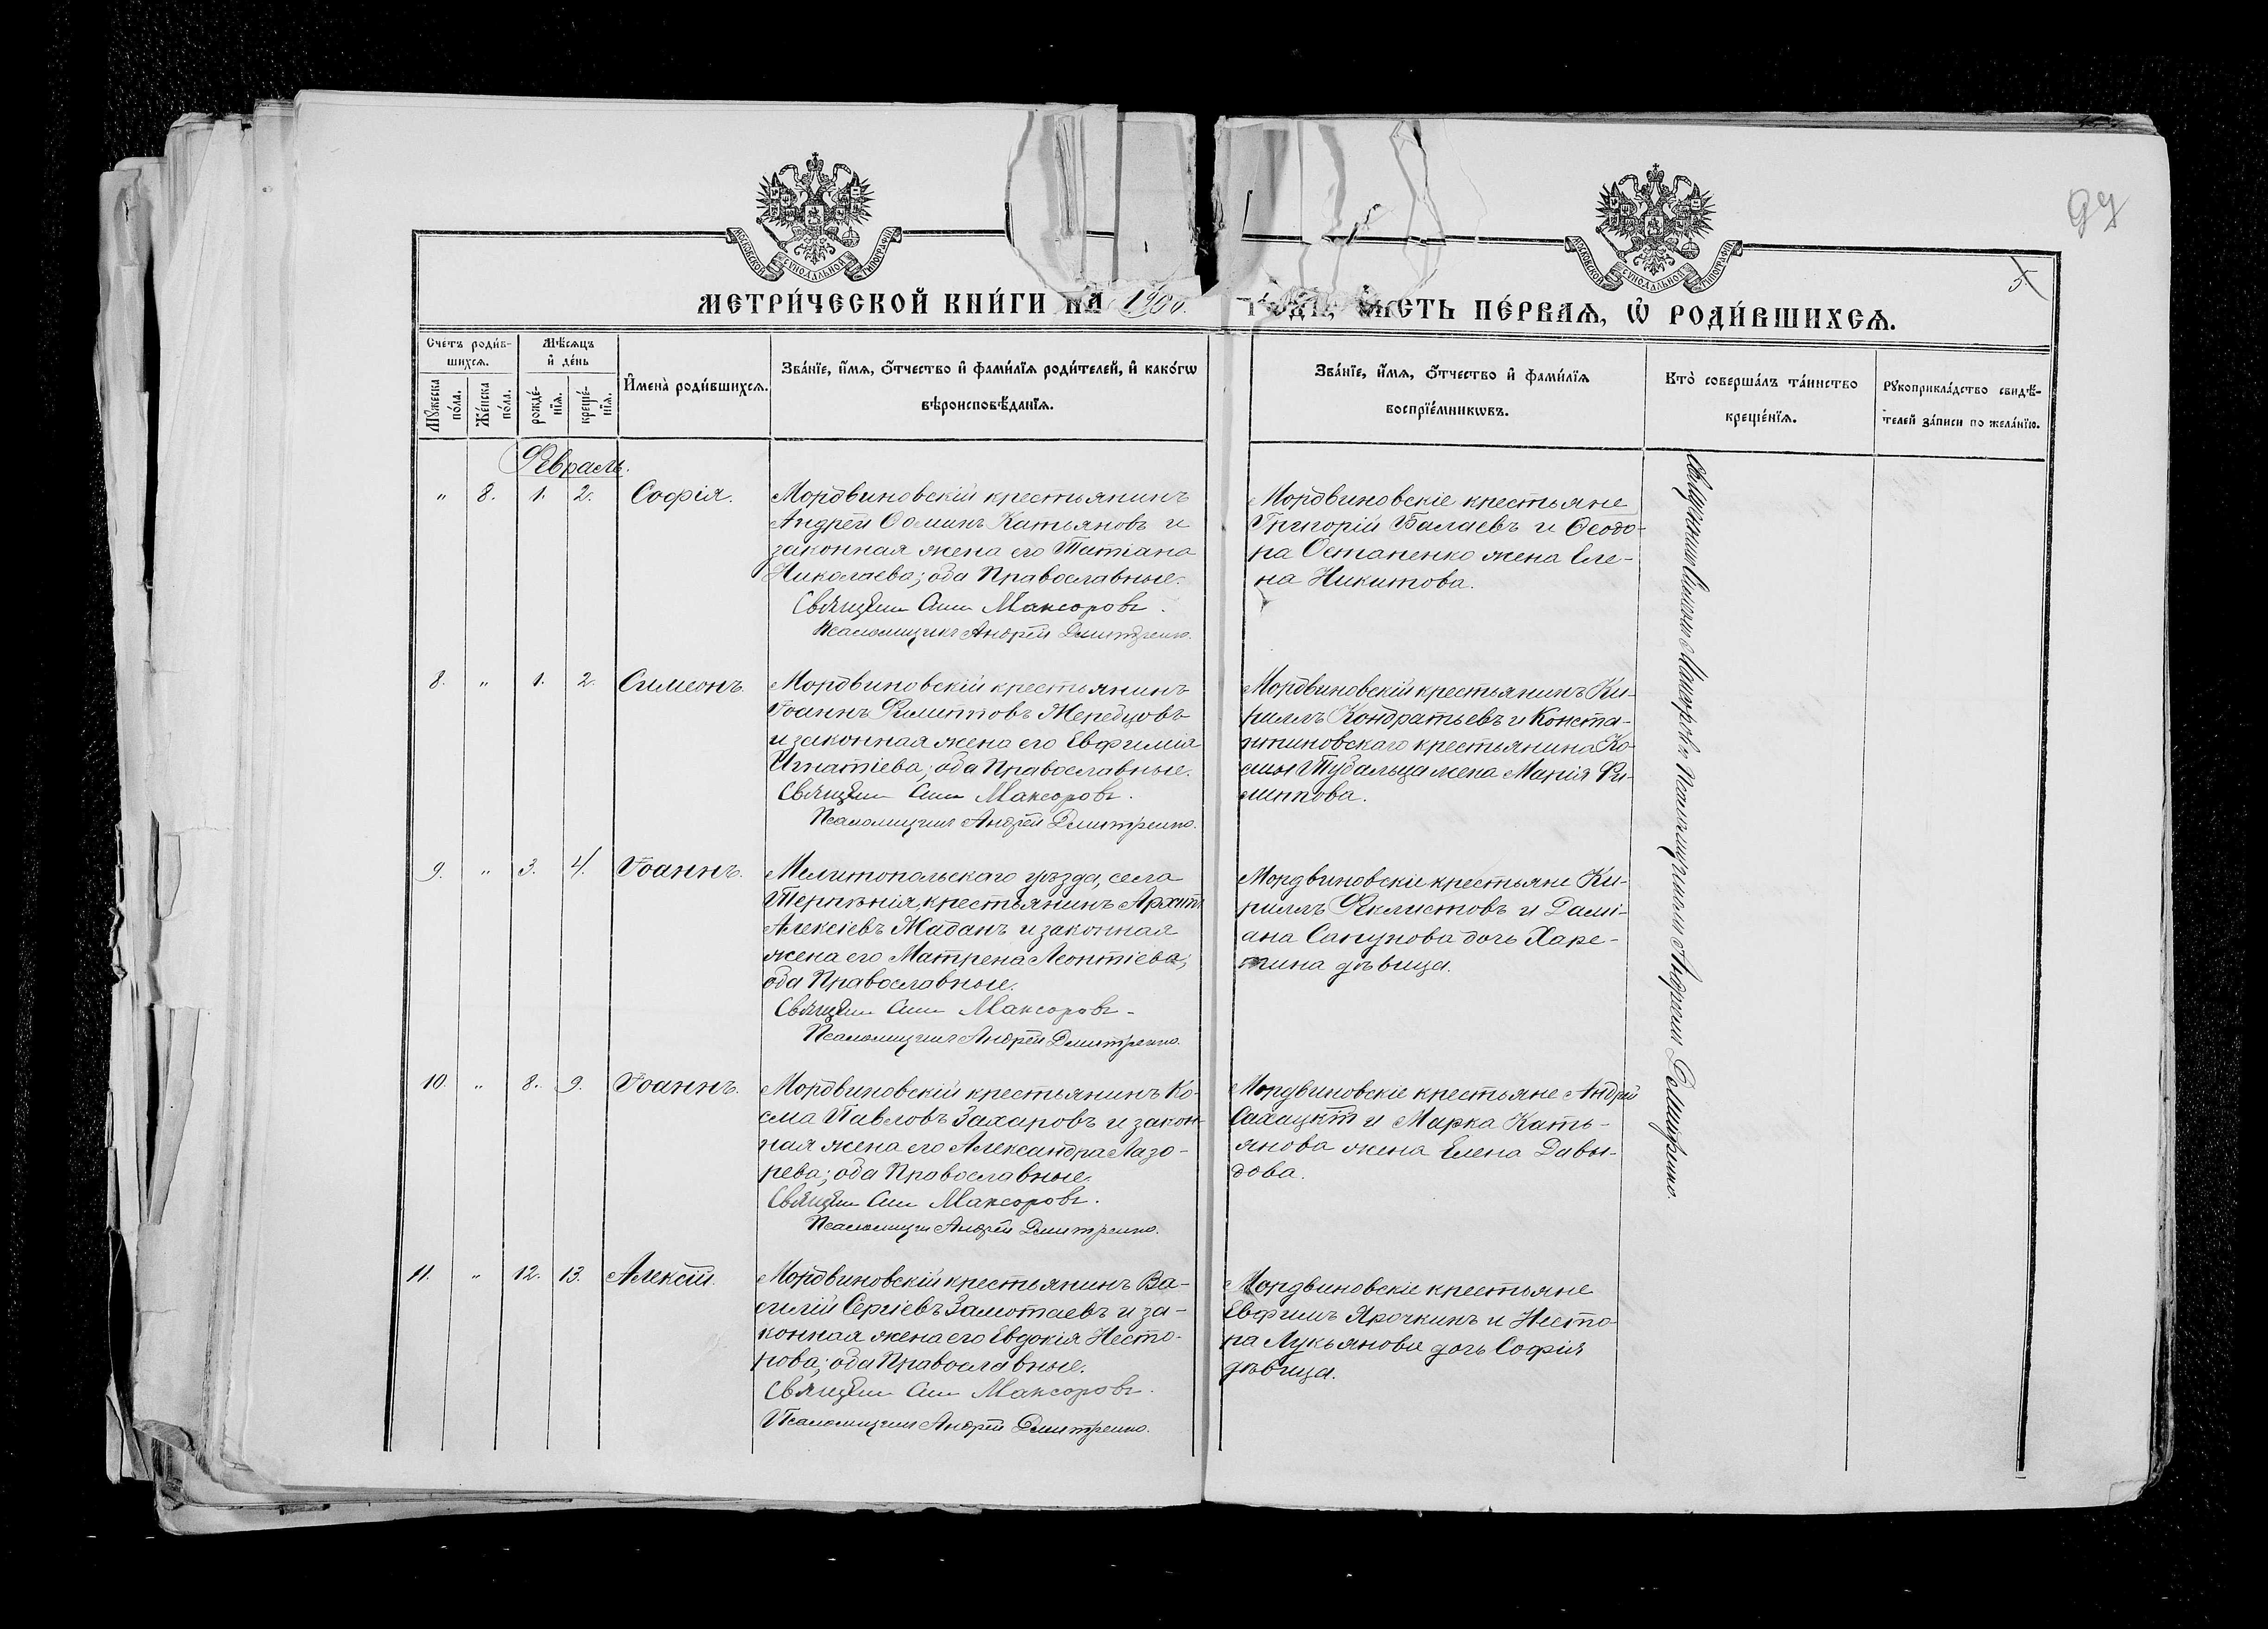 99
5
МОСКОВСКОЙ СѴНОДАЛЬНОЙ ТИПОГРАФІИ
МОСКОВСКОЙ СѴНОДАЛЬНОЙ ТИПОГРАФІИ
МЕТРИ́ЧЕСКОЙ КНИ́ГИ НА 1900. ГО́ДЪ, ЧА́СТЬ ПЕ́РВАѦ, Ѡ҆ РОДИ́ВШИХСѦ.
Сче́тъ роди́в-
шихсѧ.
Мѣ́сѧцъ
и҆ де́нь
Мꙋ́жеска по́ла.
Же́нска по́ла.
рожде́-
нїѧ.
креще́-
нїѧ.
И҆мена̀ роди́вшихсѧ.
Зва́нїе, и҆́мѧ, ѻ҆́тчество и҆ фами́лїѧ роди́телей, и҆ како́гѡ
вѣроисповѣ́данїѧ.
Зва́нїе, и҆́мѧ, ѻ҆́тчество и҆ фами́лїѧ
воспрїе́мникѡвъ.
Кто̀ соверша́лъ та́инство
креще́нїѧ.
Рꙋкоприкла́дство свидѣ́-
телей за́писи по жела́нїю.
Февраль.
„ 8. 1. 2. Софія.
Мордвиновскій крестьянинъ
Андрей Ѳоминъ Катьяновъ и
законная жена его Татіана
Николаева; оба Православные.
Священ Сим Максоровъ.
Псаломщикъ Андрей Дмитренко.
Мордвиновскіе крестьяне
Григорій Балаевъ и Ѳеодо-
ра Остапенко жена Еле-
на Никитова.
8. „ 1. 2. Симеонъ.
Мордвиновскій крестьянинъ
Іоаннъ Филипповъ Жеребцовъ
и законная жена его Евфимія
Игнатіева; оба Православные.
Священ Сим Максоровъ.
Псаломщикъ Андрей Дмитренко.
Мордвиновскій крестьянинъ Ки-
риллъ Кондратьевъ и Конста-
нтиновскаго крестьянина Ко-
смы жена Марія Фи-
липпова.
9. „ 3. 4. Іоаннъ.
Мелитопольскаго уѣзда, села
Терпѣнія, крестьянинъ Архипъ
Алексіевъ Жаданъ и законная
жена его Матрена Леонтіева;
оба Православные.
Священ Сим Максоровъ.
Псаломщикъ Андрей Дмитренко.
Мордвиновскіе крестьяне Ки-
риллъ Феклистовъ и Дамі-
ана Сапунова дочь Харе-
тина дѣвица.
10. „ 8. 9. Іоаннъ.
Мордвиновскій крестьянинъ Ко-
сма Павловъ Захаровъ и закон-
ная жена его Александра Лазо-
рева; оба Православные.
Священ Сим Максоровъ.
Псаломщикъ Андрей Дмитренко.
Мордвиновскіе крестьяне Андрей
и Марка Кать-
янова жена Елена Давы-
дова.
11. „ 12. 13. Алексій.
Мордвиновскій крестьянинъ Ва-
силій Сергіевъ Замотаевъ и за-
конная жена его Евдокія Несто-
рова; оба Православные.
Священ Сим Максоровъ.
Псаломщикъ Андрей Дмитренко.
Мордвиновскіе крестьяне
Евфимъ Ярочкинъ и Несто-
ра Лукьянова дочь Софія
дѣвица.
Священникъ Симеонъ Максоровъ Псаломщикомъ Андреемъ Дмитренко.